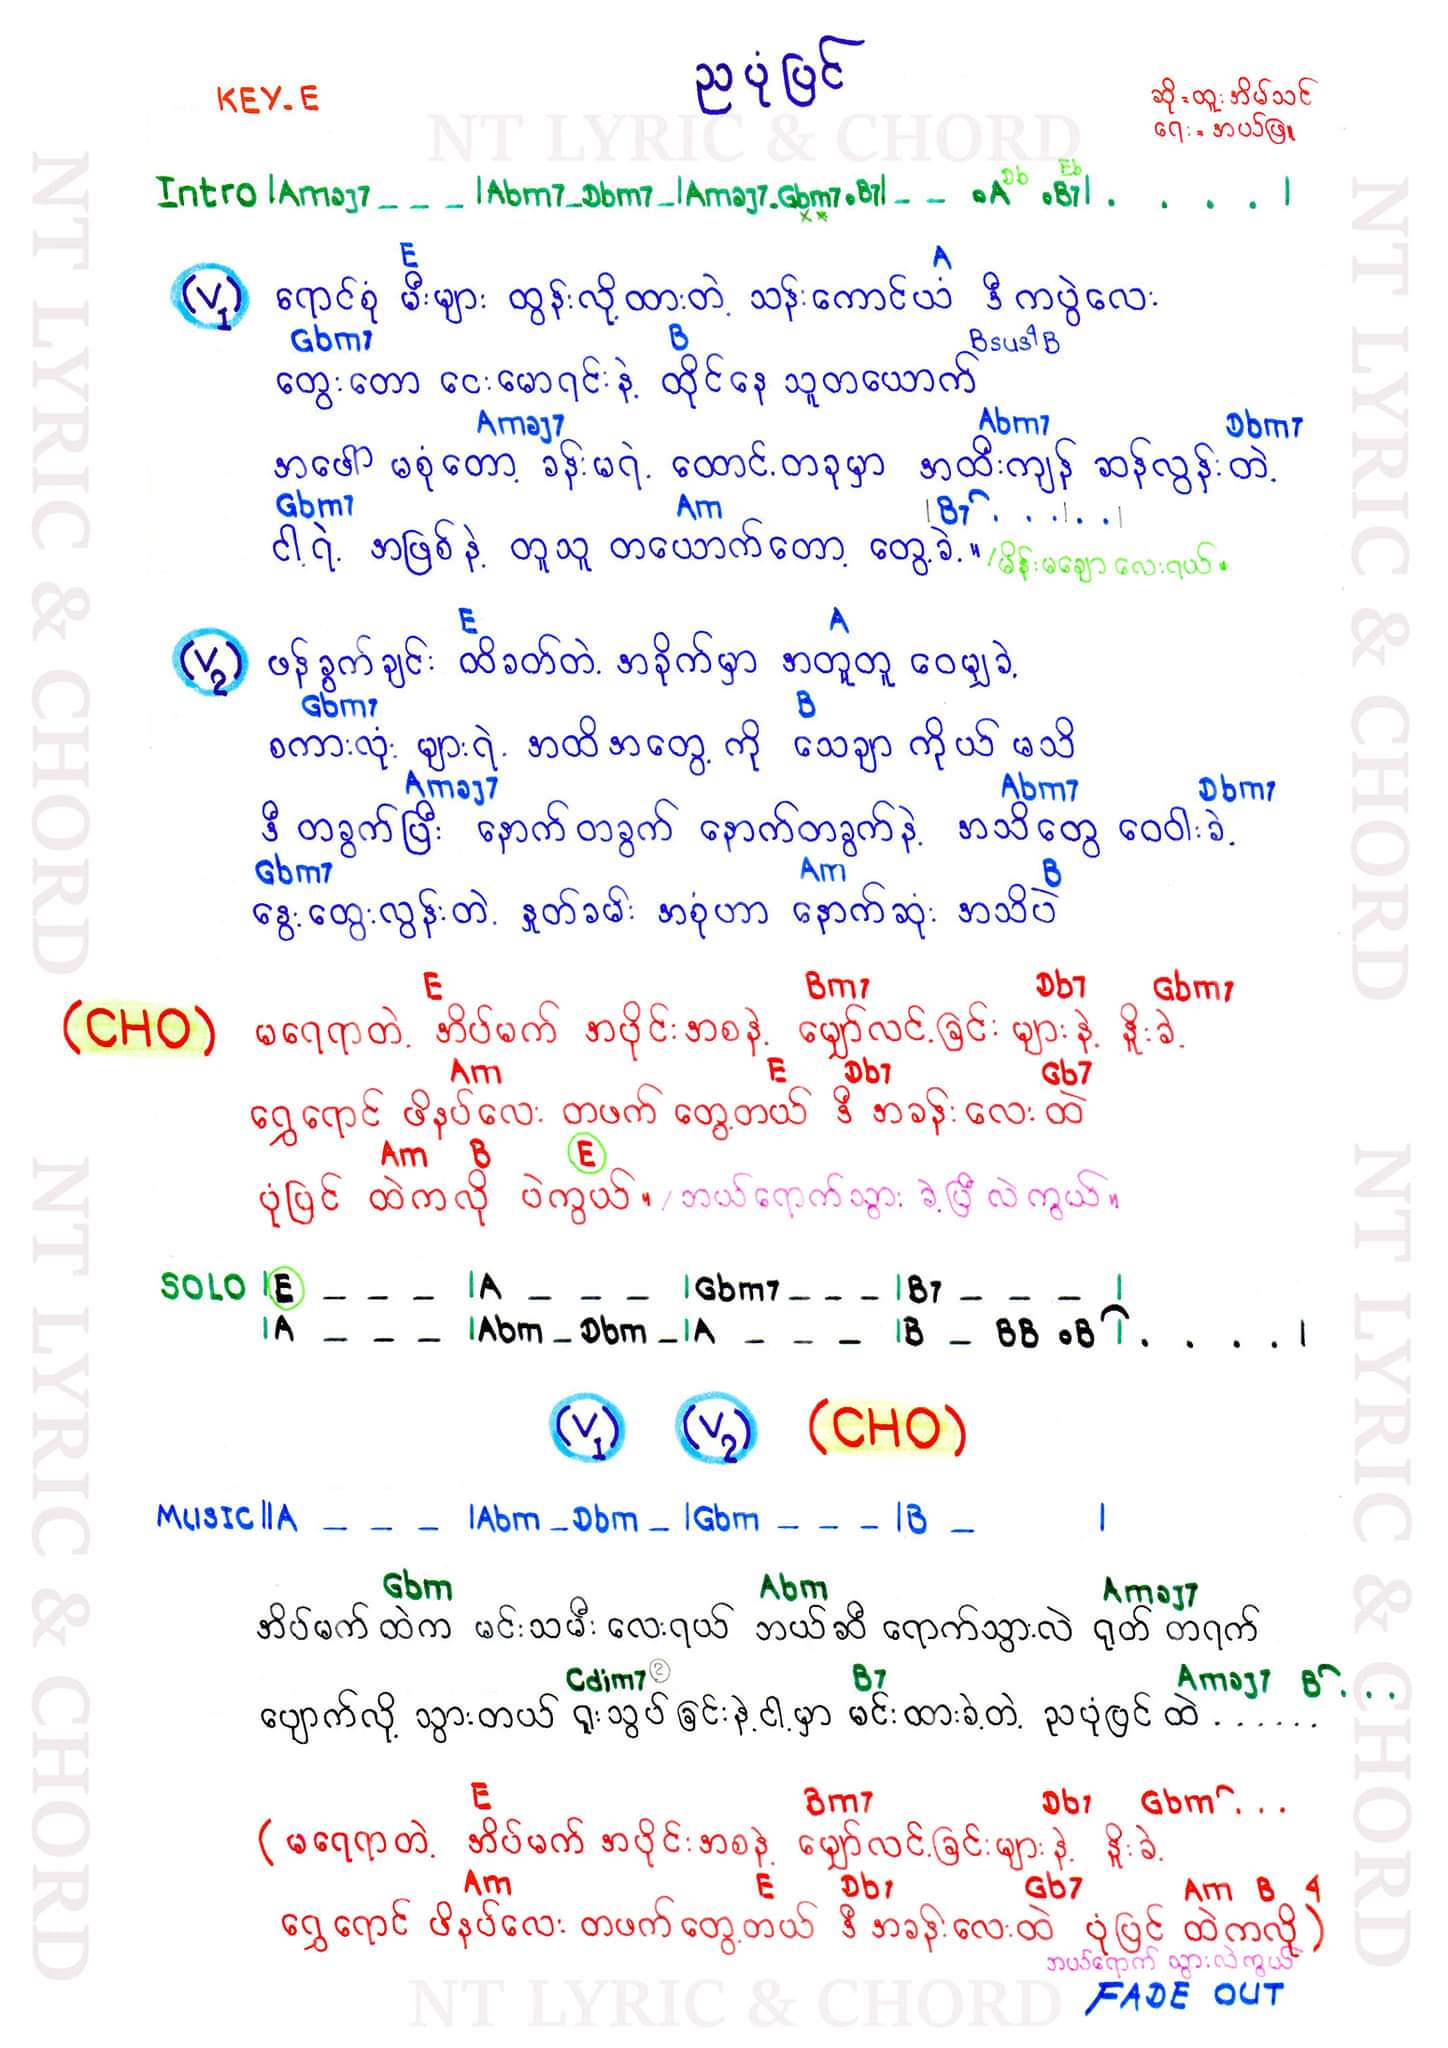 ညပုံပြင်
KEY-E
ဆို-ထူးအိမ်သင်
ရေး-ဘယ်ဖြူ
NT LYRIC & CHORD
Db Eb
Intro |Amaj7 _ _ _ |Abm7 _ Dbm7 _ |Amaj7 . Gbm7 . B7| _ _ . A . B7| . . . . |
E A
(V1) ရောင်စုံ မီးများ ထွန်းလို့ထားတဲ့ သန်းကောင်ယံ ဒီကပွဲလေး
Gbm7 B Bsus4 B
တွေးတော ငေးမောရင်းနဲ့ ထိုင်နေ သူတယောက်
Amaj7 Abm7 Dbm7
အဖော် မစုံတော့ ခန်းမရဲ့ ထောင့်တခုမှာ အထီးကျန် ဆန်လွန်းတဲ့
Gbm7 Am |B7 . . . | . . |
ငါ့ရဲ့ အဖြစ်နဲ့ တူသူ တယောက်တော့ တွေ့ခဲ့။ /မိန်းမချောလေးရယ်။
E A
(V2) ဖန်ခွက်ချင်း ထိခတ်တဲ့ အခိုက်မှာ အတူတူ ဝေမျှခဲ့
Gbm7 B
စကားလုံး များရဲ့ အထိအတွေ့ကို သေချာ ကိုယ် မသိ
Amaj7 Abm7 Dbm7
ဒီ တခွက်ပြီး နောက်တခွက် နောက်တခွက်နဲ့ အသိတွေ ဝေဝါးခဲ့
Gbm7 Am B
နွေးထွေးလွန်းတဲ့ နှုတ်ခမ်း အစုံဟာ နောက်ဆုံး အသိပဲ
E Bm7 Db7 Gbm7
(CHO) မရေရာတဲ့ အိပ်မက် အပိုင်းအစနဲ့ မျှော်လင့်ခြင်း များနဲ့ နိုးခဲ့
Am E Db7 Gb7
ရွှေရောင် ဖိနပ်လေး တဖက် တွေ့တယ် ဒီ အခန်းလေးထဲ
Am B E
ပုံပြင် ထဲကလို ပဲကွယ်။ /ဘယ်ရောက်သွား ခဲ့ပြီလဲကွယ်။
SOLO |E _ _ _ |A _ _ _ |Gbm7 _ _ _ |B7 _ _ _ |
|A _ _ _ |Abm _ Dbm _ |A _ _ _ |B _ BB .B | . . . . |
(V1) (V2) (CHO)
MUSIC ||A _ _ _ |Abm _ Dbm _ |Gbm _ _ _ |B _ |
Gbm Abm Amaj7
အိပ်မက်ထဲက မင်းသမီးလေးရယ် ဘယ်ဆီ ရောက်သွားလဲ ရုတ်တရက်
Cdim7 ② B7 Amaj7 B . . .
ပျောက်လို့ သွားတယ် ရူးသွပ်ခြင်းနဲ့ငါ့မှာ မင်းထားခဲ့တဲ့ ညပုံပြင်ထဲ . . . . . .
E Bm7 Db7 Gbm . . .
(မရေရာတဲ့ အိပ်မက် အပိုင်းအစနဲ့ မျှော်လင့်ခြင်းများနဲ့ နိုးခဲ့
Am E Db7 Gb7 Am B 4
ရွှေရောင် ဖိနပ်လေး တဖက်တွေ့တယ် ဒီ အခန်းလေးထဲ ပုံပြင် ထဲကလို)
ဘယ်ရောက် သွားလဲကွယ်
FADE OUT
NT LYRIC & CHORD
NT LYRIC & CHORD
NT LYRIC & CHORD
NT LYRIC & CHORD
NT LYRIC & CHORD